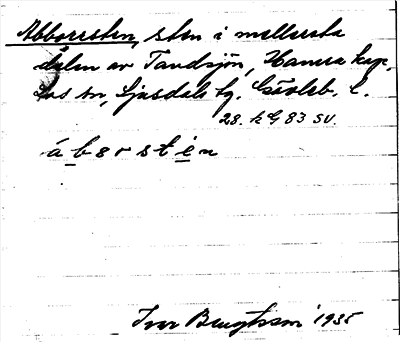 Abborrsten, sten i mellersta
delen av Tandsjön, Hamra kap.
Los sn, Ljusdals tg. Gävleb. l.
28. h G 83 SV.
á b e r s t e n
Ivar Bengtsson 1935